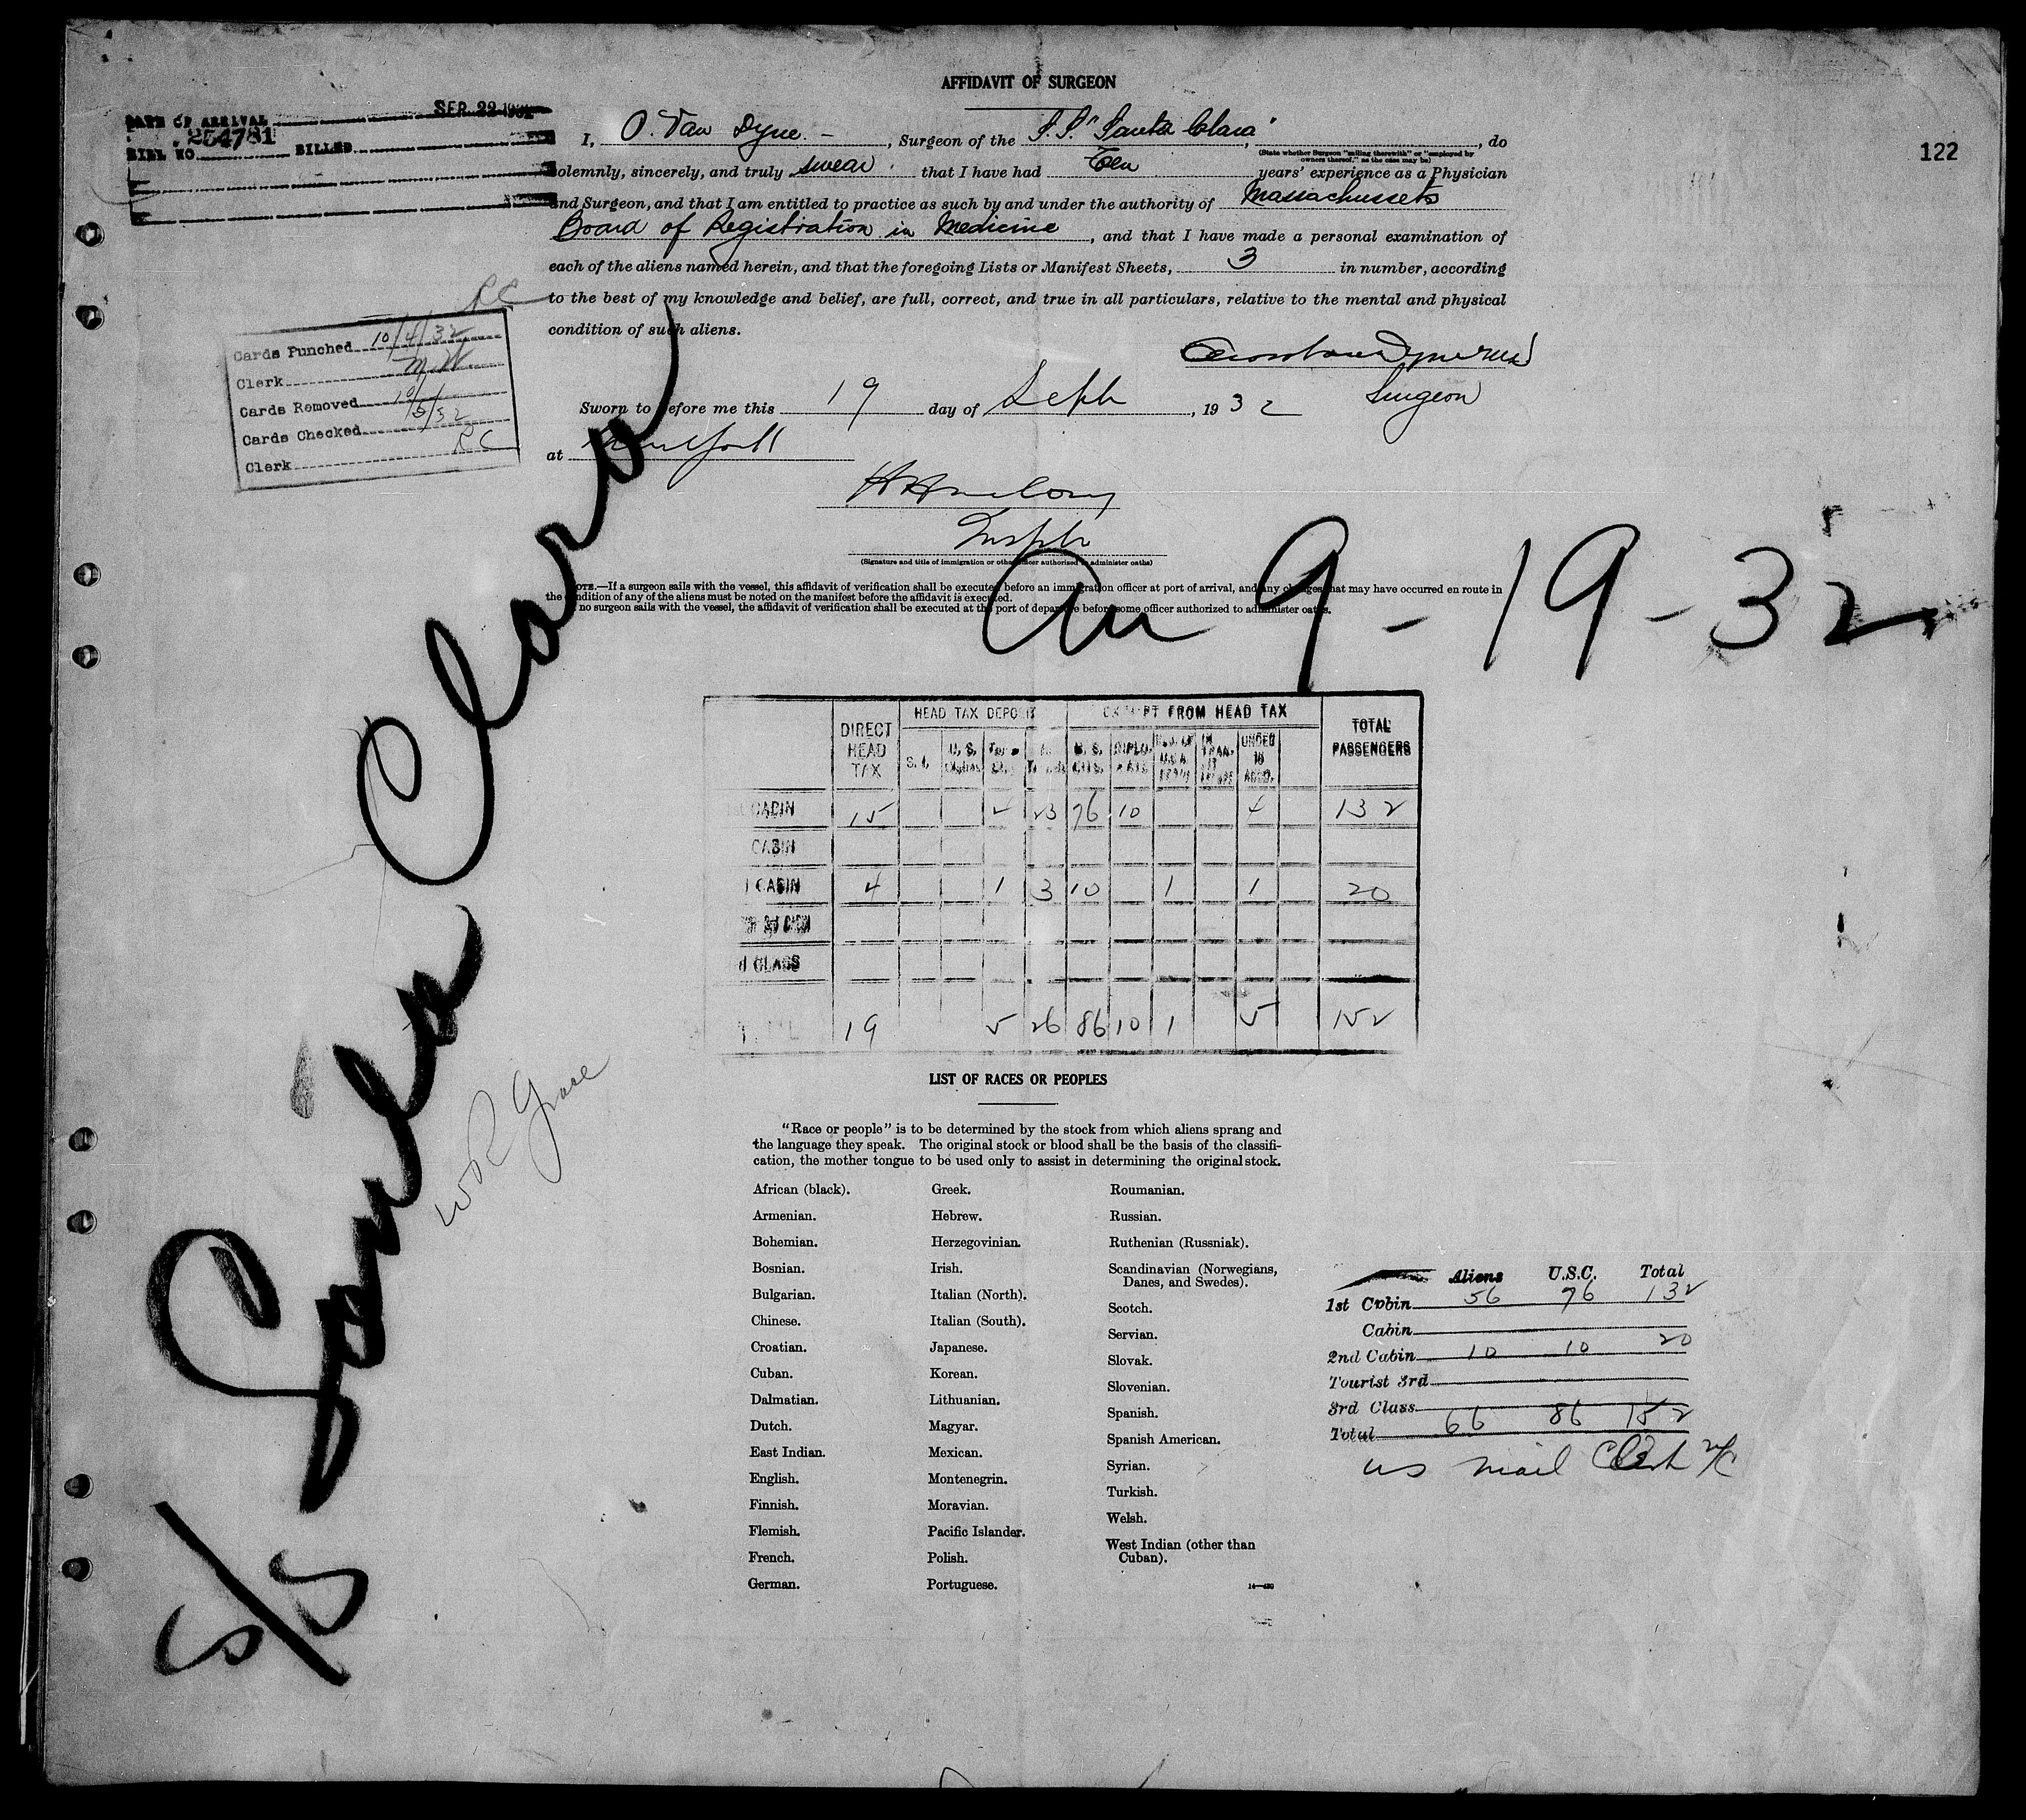 AFFIDAVIT OF SURGEON
122
SEP 22 1932
DATE OF ARRIVAL
254781
BILL NO. BILLED
I, O. Van Dyne. -, Surgeon of the S.S. "Santa Clara", do
(State whether Surgeon "sailing therewith" or "employed by
owners thereof," as the case may be)
solemnly, sincerely, and truly swear that I have had Ten years' experience as a Physician
and Surgeon, and that I am entitled to practice as such by and under the authority of Massachussets
Board of Registration in Medicine, and that I have made a personal examination of
each of the aliens named herein, and that the foregoing Lists or Manifest Sheets, 3 in number, according
to the best of my knowledge and belief, are full, correct, and true in all particulars, relative to the mental and physical
condition of such aliens.
Surgeon
Sworn to before me this 19 day of Sept, 1932
at New York
Inspr
(Signature and title of immigration or other officer authorized to administer oaths)
NOTE.—If a surgeon sails with the vessel, this affidavit of verification shall be executed before an immigration officer at port of arrival, and any changes that may have occurred en route in
the condition of any of the aliens must be noted on the manifest before the affidavit is executed.
If no surgeon sails with the vessel, the affidavit of verification shall be executed at the port of departure before some officer authorized to administer oaths.
RC
Cards Punched 10/4/32
Clerk M.W.
Cards Removed
Cards Checked 10/5/32
Clerk RC
S/S Santa Clara
W R Grace
Arr 9-19-32
HEAD TAX DEPOSIT EXEMPT FROM HEAD TAX
DIRECT HEAD TAX S.I. U.S. U.S. CITS. DIPLOMATS IN TRANSIT UNDER 16 ACCD. TOTAL PASSENGERS
1st CABIN 15 4 23 76 10 4 132
CABIN
CABIN 4 1 3 10 1 1 20
CLASS
19 5 26 86 10 1 5 152
LIST OF RACES OR PEOPLES
"Race or people" is to be determined by the stock from which aliens sprang and
the language they speak. The original stock or blood shall be the basis of the classifi-
cation, the mother tongue to be used only to assist in determining the original stock.
African (black).
Armenian.
Bohemian.
Bosnian.
Bulgarian.
Chinese.
Croatian.
Cuban.
Dalmatian.
Dutch.
East Indian.
English.
Finnish.
Flemish.
French.
German.
Greek.
Hebrew.
Herzegovinian.
Irish.
Italian (North).
Italian (South).
Japanese.
Korean.
Lithuanian.
Magyar.
Mexican.
Montenegrin.
Moravian.
Pacific Islander.
Polish.
Portuguese.
Roumanian.
Russian.
Ruthenian (Russniak).
Scandinavian (Norwegians,
Danes, and Swedes).
Scotch.
Servian.
Slovak.
Slovenian.
Spanish.
Spanish American.
Syrian.
Turkish.
Welsh.
West Indian (other than
Cuban).
Aliens U.S.C. Total
1st Cabin 56 76 132
Cabin
2nd Cabin 10 10 20
Tourist 3rd
3rd Class
Total 66 86 152
US Mail Clerk